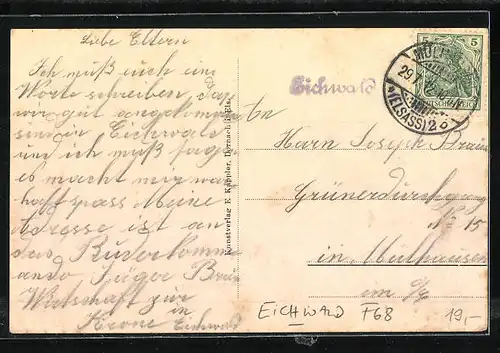 Liebe Eltern
Ich muß euch ein
Worte schreiben, das
wir gut angekommen
sind in Eichwald
und ich muß sagen
es macht mir wahr
haft spass Meine
Adresse ist an
das Ruderkomm
ando Jäger Braun
Wirtschaft zur
Krone in Eichwald
Kunstverlag E. Kappler, Dornach i. Els.
An
Eichwald
5 5
MÜL
29
(ELSASS) 2
Herrn Joseph Braun
Grünerdurchgang
No 15
in Mülhausen
im O/E
EICHWALD F68 19,-